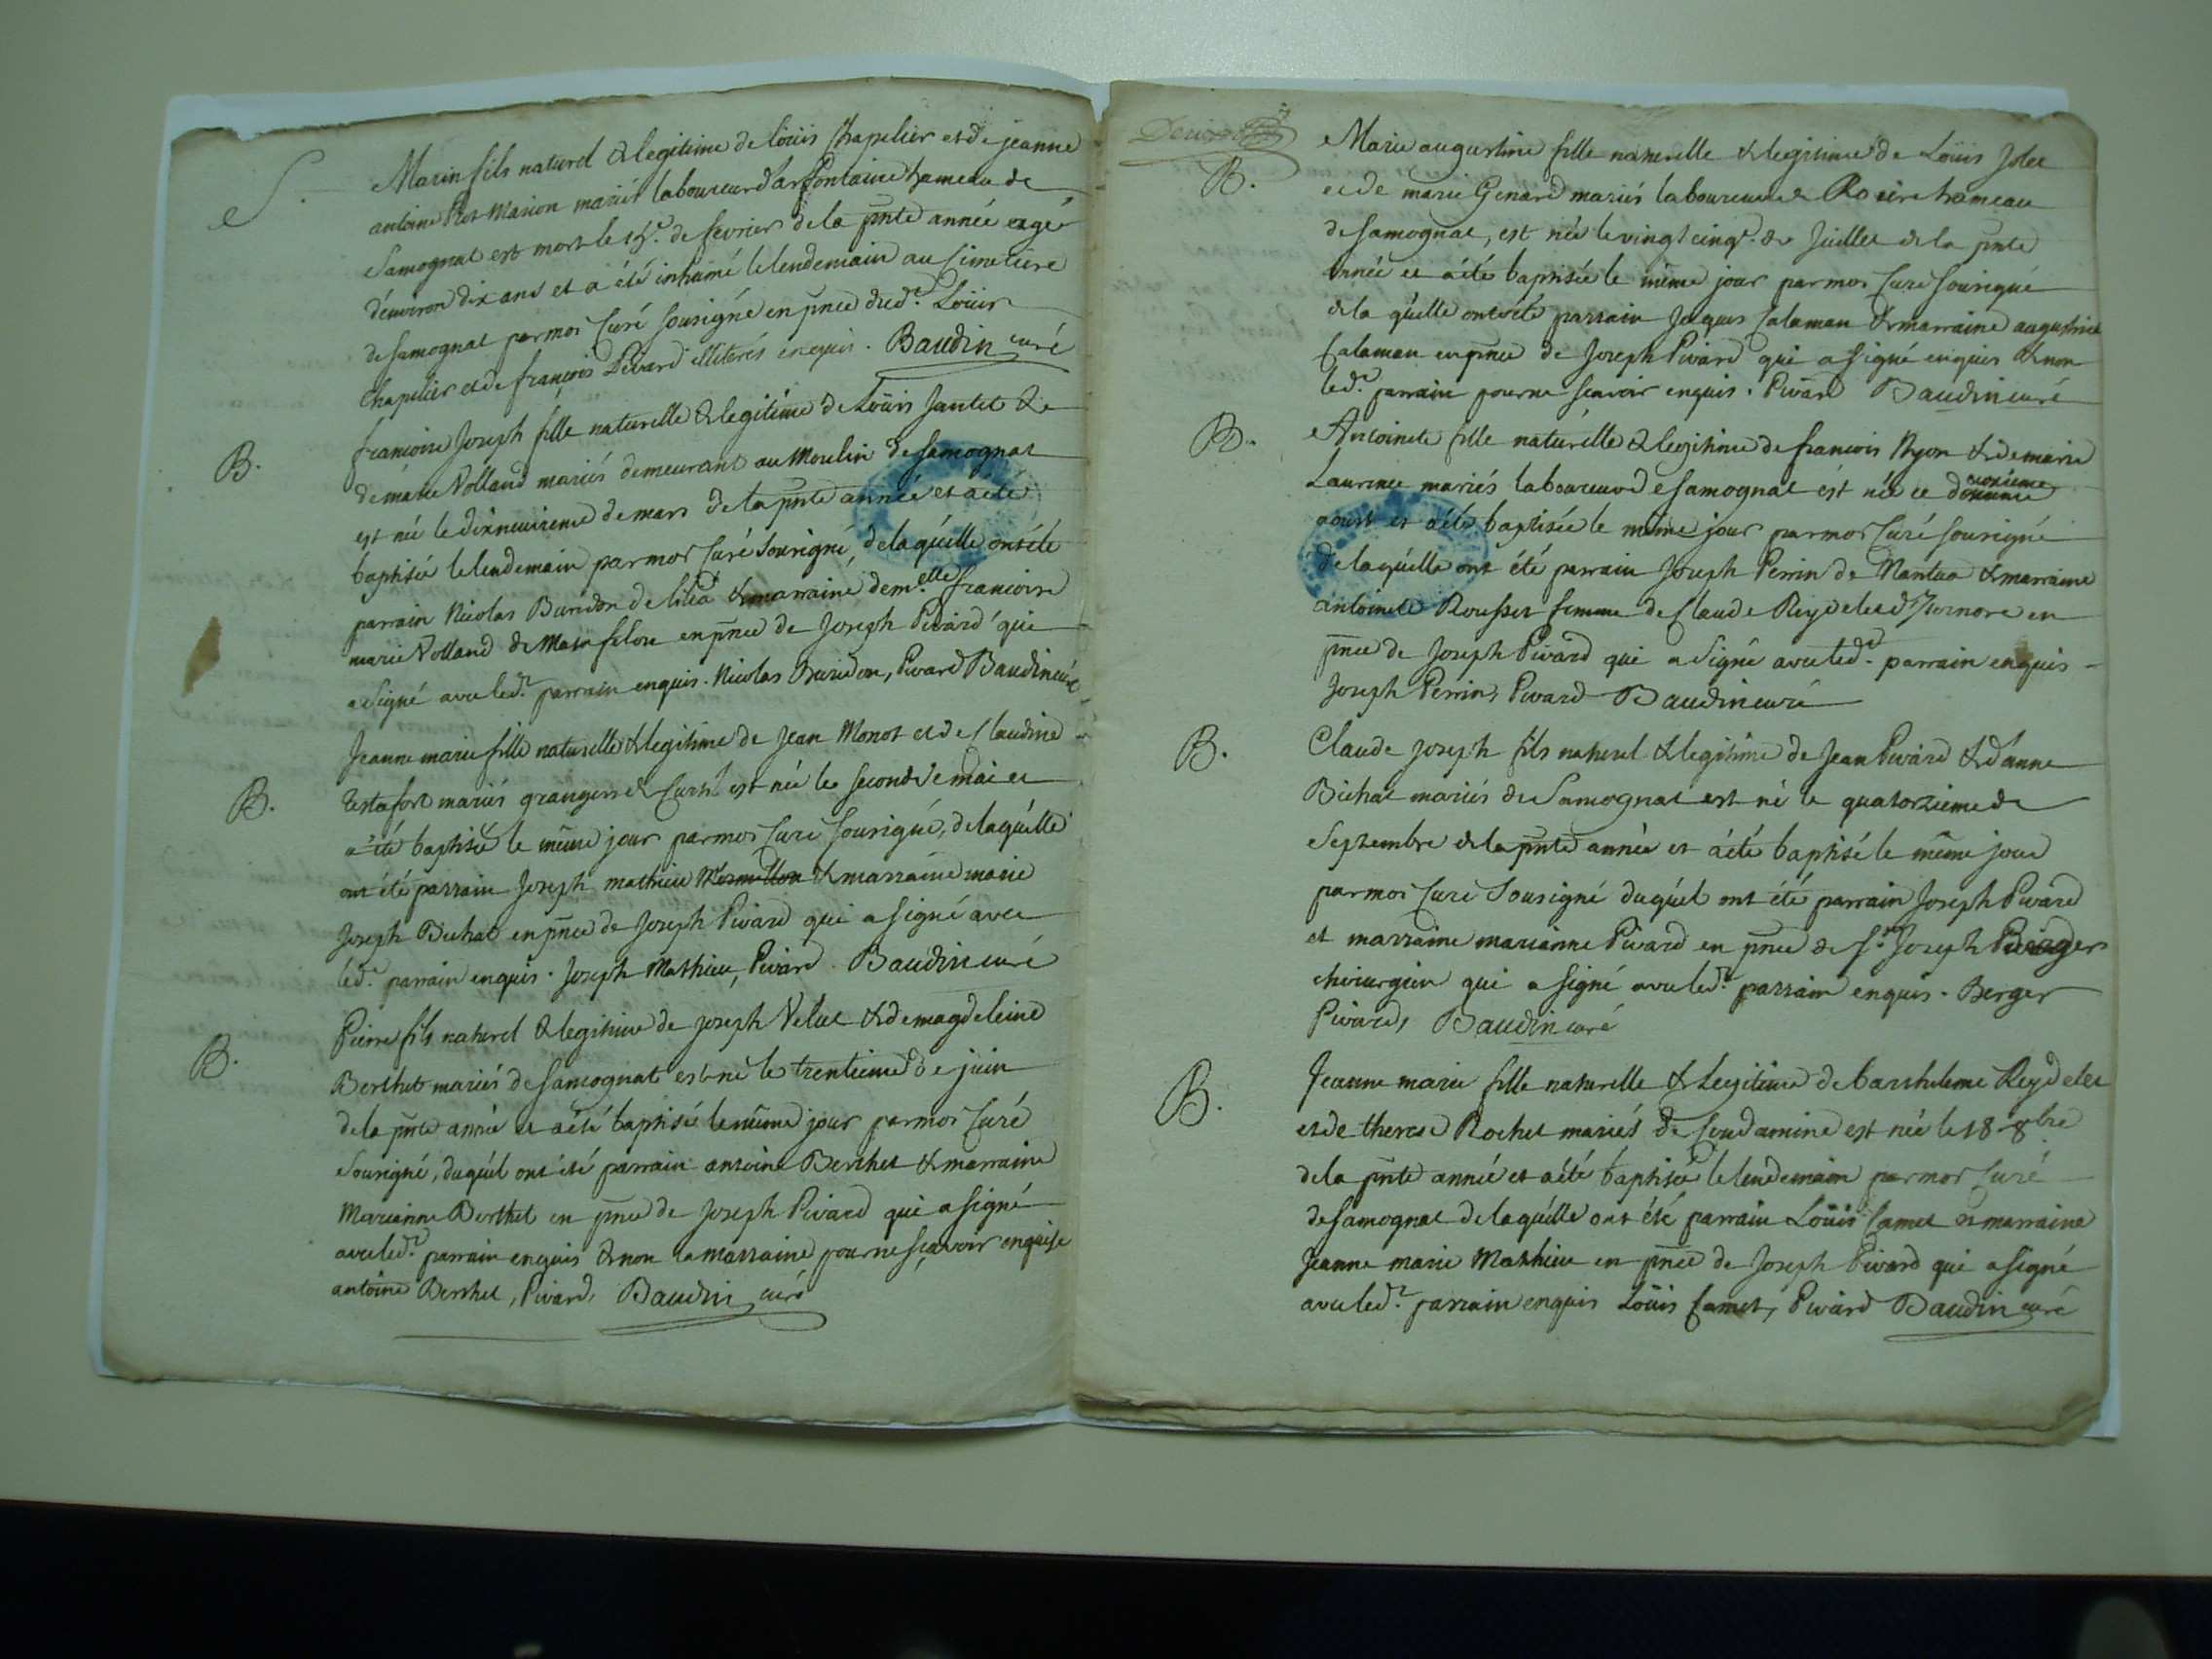 S.
Marin fils naturel & legitime de Loüis Chapelier et de jeanne
antoine Prost Marion mariés laboureurs d'arfontaine hameau de
Samognat est mort le de fevrier de la pñte année agé
d'environ dix ans et a été inhumé le lendemain au simetiere
de Samognat par moi Curé sousigné en pñce dud.t Loüis
Chapelier et de françois Pivard illiterés enquis. Baudin curé
B.
françoise Joseph fille naturelle & legitime de Loüis Jantet &
de marie Volland mariés demeurant au Moulin de Samognat
est née le dixneuvieme de mars de la pñte année et a été
baptisée le lendemain par moi Curé sousigné, de laquélle ont été
parrain Nicolas Buridon de & marraine dem.elle françoise
marie Volland de Matafelon en pñce de Joseph Pivard qui
a signé avec led.t parrain enquis. Nicolas Buridon, Pivard Baudin curé
B.
Jeanne marie fille naturelle & legitime de Jean Monot et de Claudine
Testafort mariés grangers est née le second de mai et
a été baptisée le même jour par moi Curé sousigné, de laquélle
ont été parrain Joseph mathieu & marraine marie
Joseph Bichat en pñce de Joseph Pivard qui a signé avec
led.t parrain enquis. Joseph Mathieu, Pivard. Baudin curé
B.
Pierre fils naturel & legitime de Joseph Velut & de magdeleine
Berthet mariés de Samognat est né le trentieme de juin
de la pñte année et a été baptisé le même jour par moi Curé
sousigné, duquél ont été parrain antoine Berthet & marraine
Marianne Berthet en pñce de Joseph Pivard qui a signé
avec led.t parrain enquis & non la marraine pour ne sçavoir enquise
antoine Berthet, Pivard, Baudin curé
B.
Marie augustine fille naturelle & legitime de Loüis Jolet
et de marie Genard mariés laboureurs de hameau
de Samognat, est née le vingt cinq.e de Juillet de la pñte
année et a été baptisée le même jour par moi Curé sousigné
de la quélle ont été parrain Jaques Calaman & marraine augustine
Calaman en pñce de Joseph Pivard qui a signé enquis & non
led.t parrain pour ne scavoir enquis. Pivard Baudin curé
B.
Antoinete fille naturelle & legitime de françois Nyon & de marie
Laurince mariés laboureurs de Samognat ést née ce
aoust et a été baptisée le même jour par moi Curé sousigné
de laquélle ont été parrain Joseph Perrin de Nantua & marraine
antoinete Rousset femme de Claude Reydelet d'Izernore en
pñce de Joseph Pivard qui a signé avec led.t parrain enquis
Joseph Perrin, Pivard Baudin curé
B.
Claude Joseph fils naturel & legitime de Jean Pivard & d'anne
Bichat mariés de Samognat est né le quatorzieme de
Septembre de la pñte année et a été baptisé le même jour
par moi Curé Sousigné duquél ont été parrain Joseph Pivard
et marraine marianne Pivard en pñce de S.r Joseph Berger
chirurgien qui a signé avec led.t parrain enquis. Berger
Pivard, Baudin curé
B.
Jeanne marie fille naturelle & legitime de barthelemi Reydelet
et de therese Rochet mariés de Condamine est née le 18 8bre
de la pñte année et a été baptisée le lendemain par moi Curé
de Samognat de laquélle ont été parrain Loüis Camet et marraine
Jeanne marie Mathieu en pñce de Joseph Pivard qui a signé
avec led.t parrain enquis Loüis Camet, Pivard Baudin curé